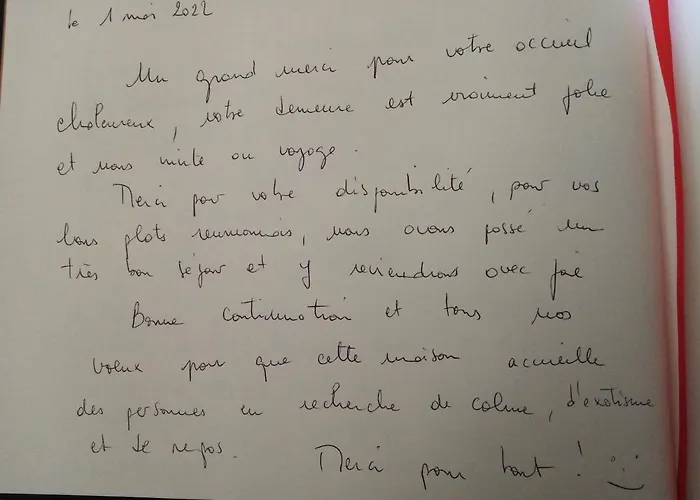 le 1 mai 2022
Un grand merci pour votre accueil
chaleureux, votre demeure est vraiment jolie
et nous invite au voyage.
Merci pour votre disponibilité, pour vos
bons plats réunionnais, nous avons passé un
très bon séjour et y reviendrons avec joie
Bonne continuation et tous nos
voeux pour que cette maison accueille
des personnes en recherche de calme, d'exotisme
et de repos. Merci pour tout ! :)